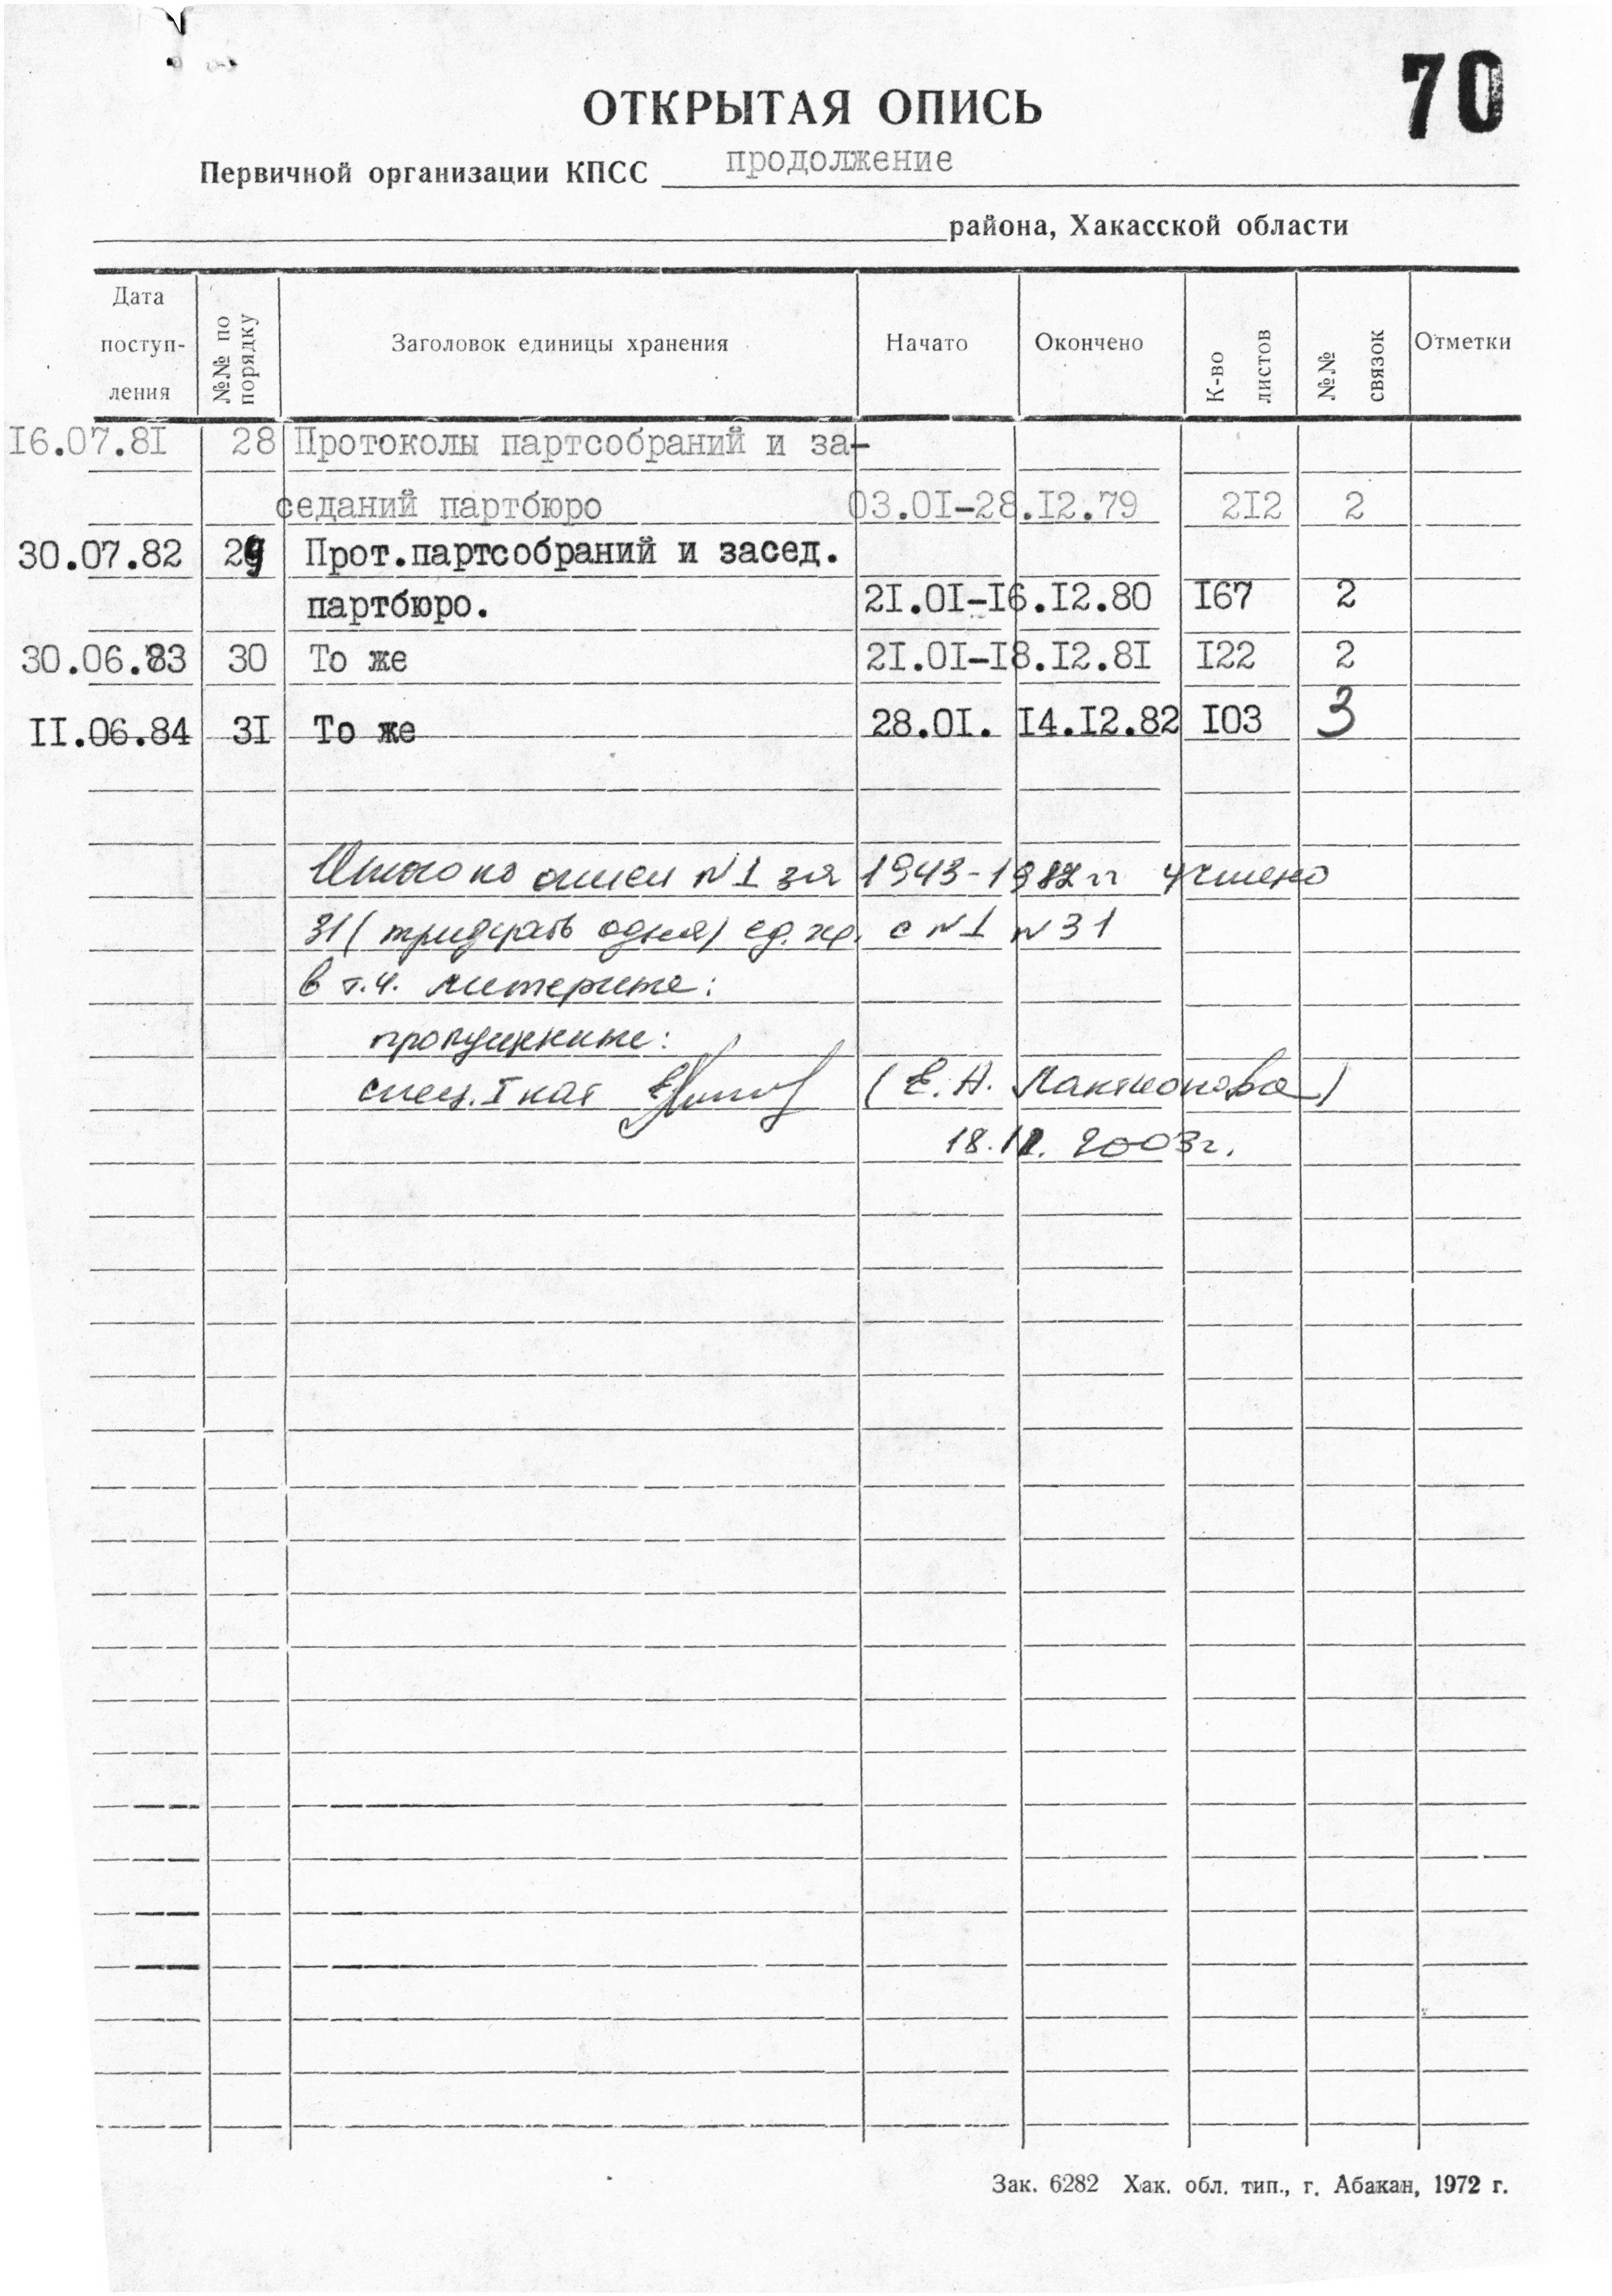 70
ОТКРЫТАЯ ОПИСЬ
Первичной организации КПСС продолжение
района, Хакасской области
Дата поступ-ления №№ по порядку Заголовок единицы хранения Начато Окончено К-во листов №№ связок Отметки
16.07.81 28 Протоколы партсобраний и за-
седаний партбюро 03.01-28.12.79 212 2
30.07.82 29 Прот.партсобраний и засед.
партбюро. 21.01-16.12.80 167 2
30.06.83 30 То же 21.01-18.12.81 122 2
11.06.84 31 То же 28.01. 14.12.82 103 3
Итого по описи №1 за 1943-1982 гг учтено
31 (тридцать одна) ед. хр. с №1 №31
в т.ч. литерные:
пропущенные:
спец. I кат (Е.Н. Лактионова)
18.12.2003г.
Зак. 6282 Хак. обл. тип., г. Абакан, 1972 г.